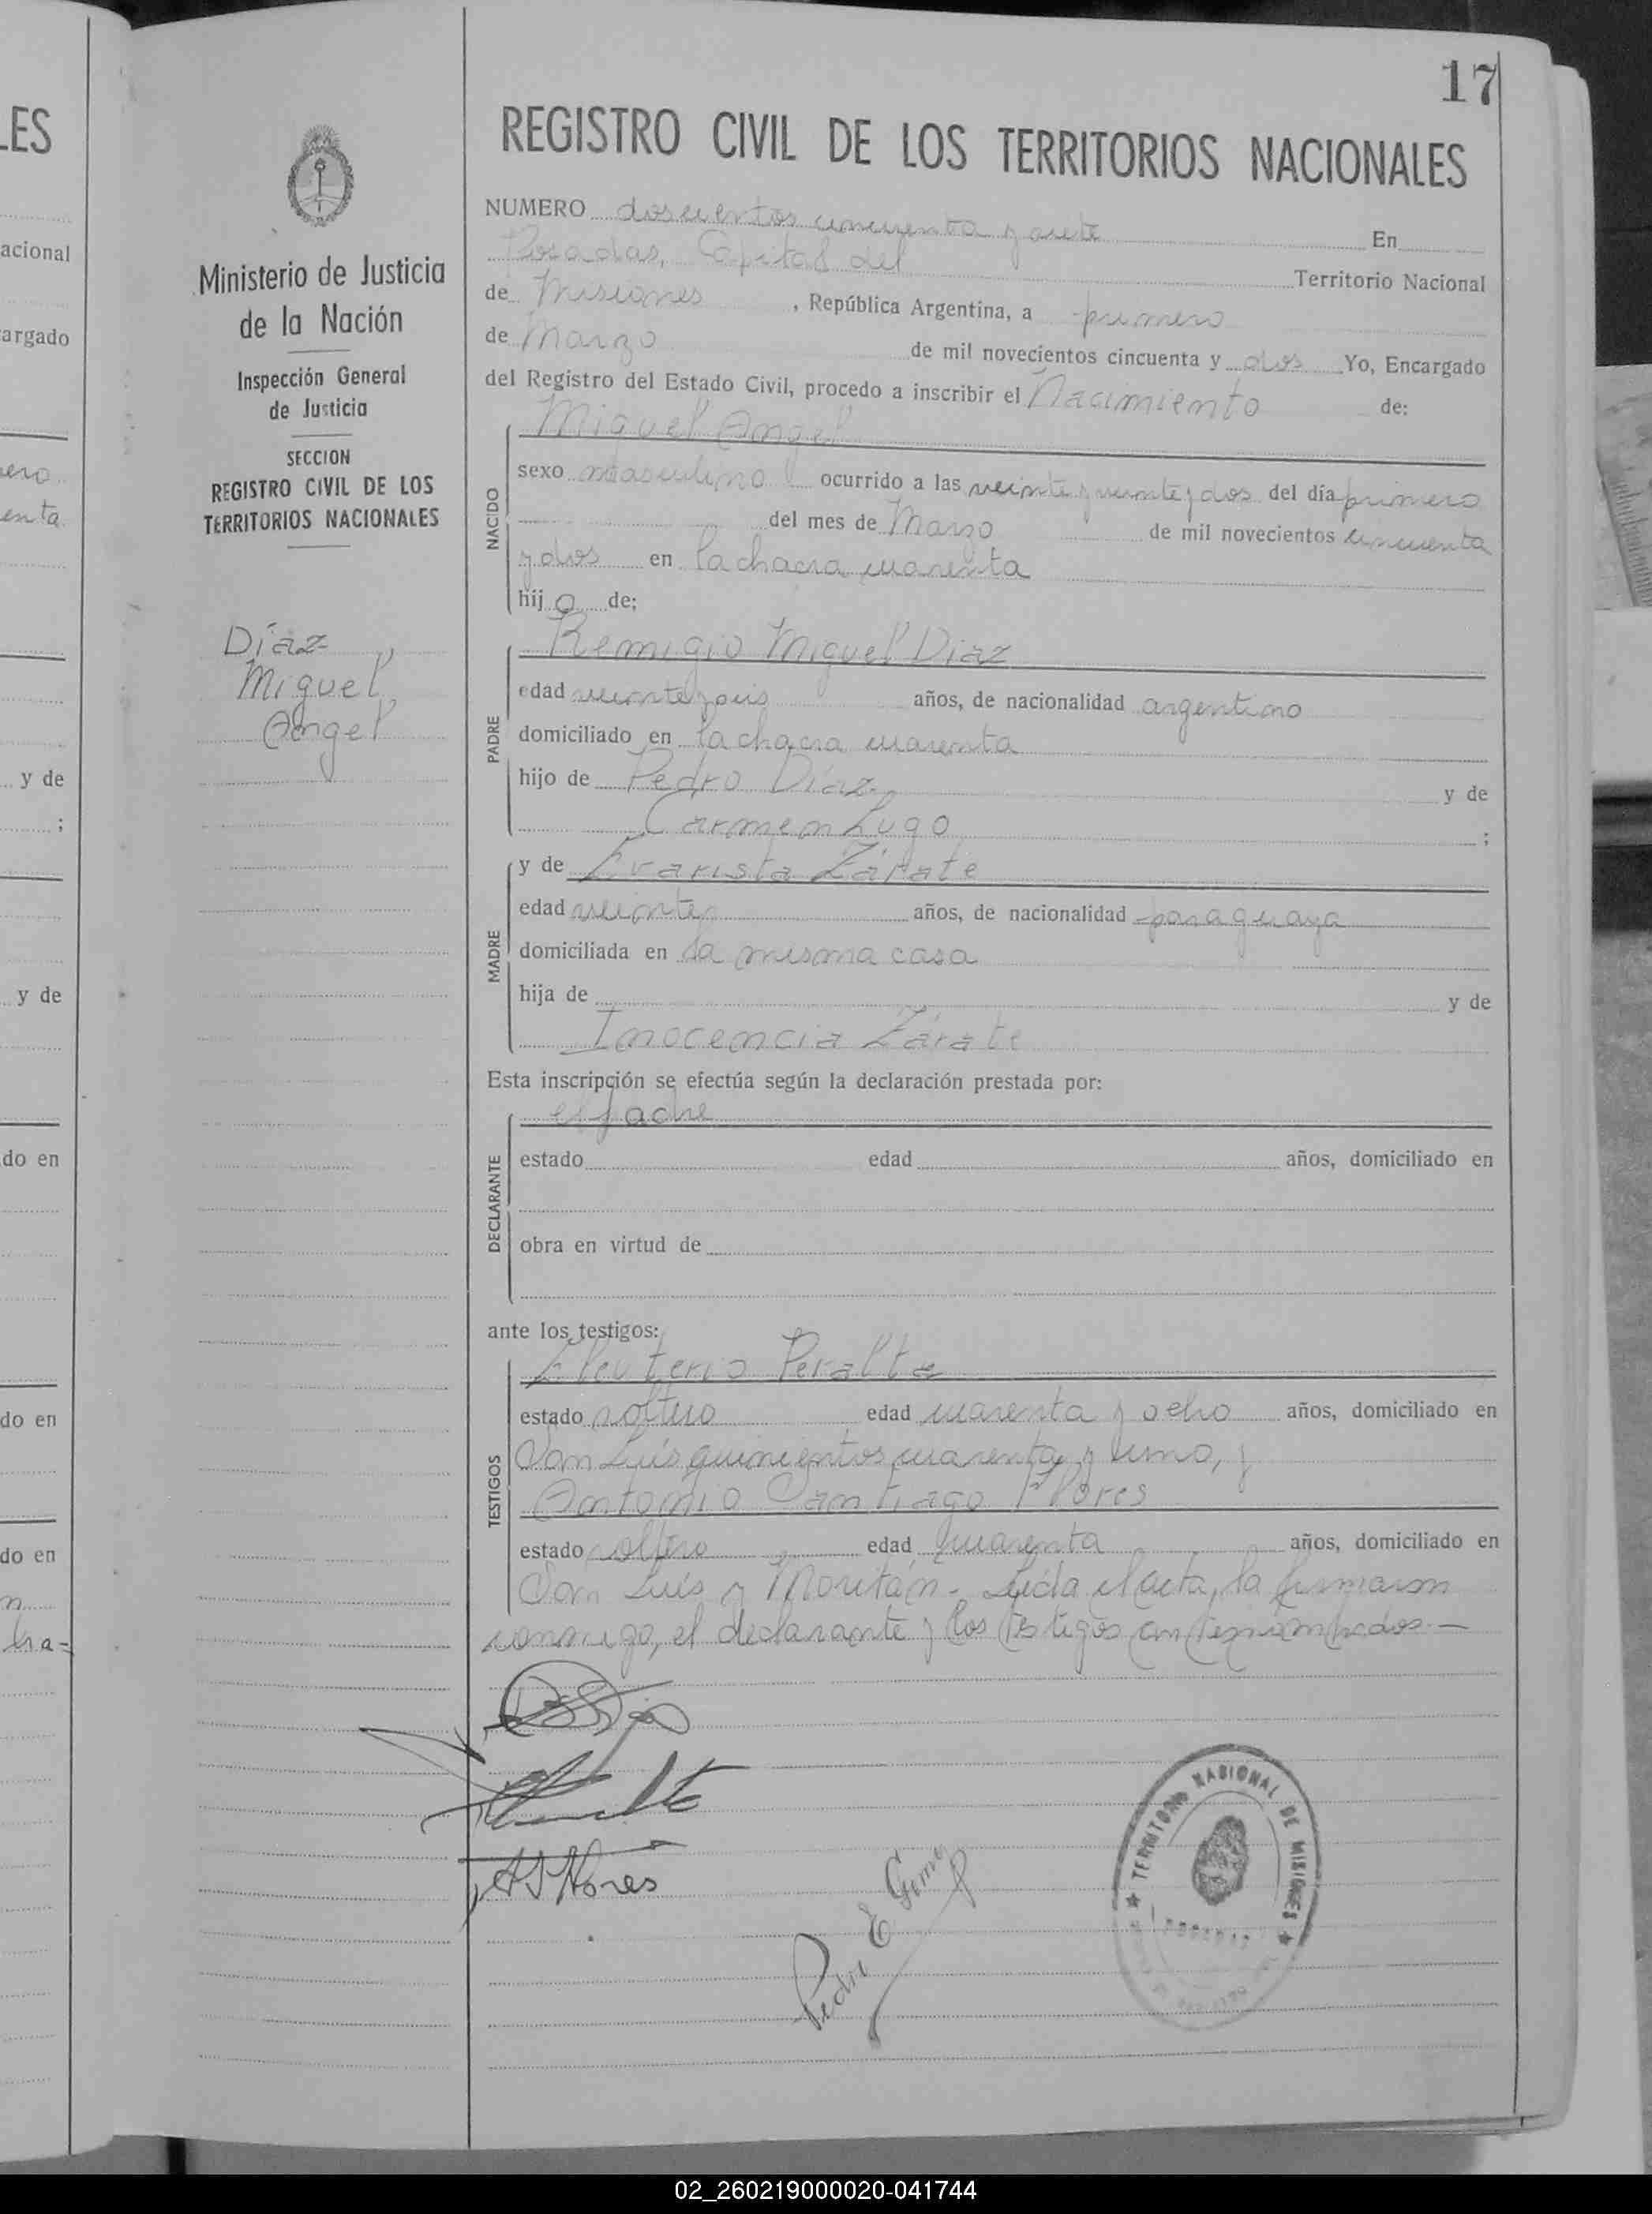 17
REGISTRO CIVIL DE LOS TERRITORIOS NACIONALES
NUMERO doscientos cincuenta y siete En
Posadas, Capital del Territorio Nacional
de Misiones, República Argentina, a primero
de Marzo de mil novecientos cincuenta y dos Yo, Encargado
del Registro del Estado Civil, procedo a inscribir el Nacimiento de:
Miguel Angel
NACIDO
sexo masculino ocurrido a las veinte y veinte y dos del día primero
del mes de Marzo de mil novecientos cincuenta
y dos en la chacra cuarenta
hij o de;
PADRE
Remigio Miguel Diaz
edad veinte y seis años, de nacionalidad argentino
domiciliado en la chacra cuarenta
hijo de Pedro Díaz y de
Carmen Lugo ;
MADRE
y de Evarista Zárate
edad veinte años, de nacionalidad paraguaya
domiciliada en la misma casa
hija de y de
Inocencia Zárate
Esta inscripción se efectúa según la declaración prestada por:
DECLARANTE
el padre
estado edad años, domiciliado en
obra en virtud de
ante los testigos:
TESTIGOS
Eleuterio Peralta
estado soltero edad cuarenta y ocho años, domiciliado en
San Luis quinientos cuarenta y uno, y
Antonio Santiago Flores
estado soltero edad cuarenta años, domiciliado en
San Luis y Moritán - Leída el acta, la firmaron
conmigo, el declarante y los testigos antenombrados.—
A S Flores
Pedro E Gomez
TERRITORIO NACIONAL DE MISIONES
Ministerio de Justicia
de la Nación
Inspección General
de Justicia
SECCION
REGISTRO CIVIL DE LOS
TERRITORIOS NACIONALES
Díaz,
Miguel
Angel
LES
acional
argado
ero
enta
y de
;
y de
do en
do en
do en
n
ha-
02_260219000020-041744